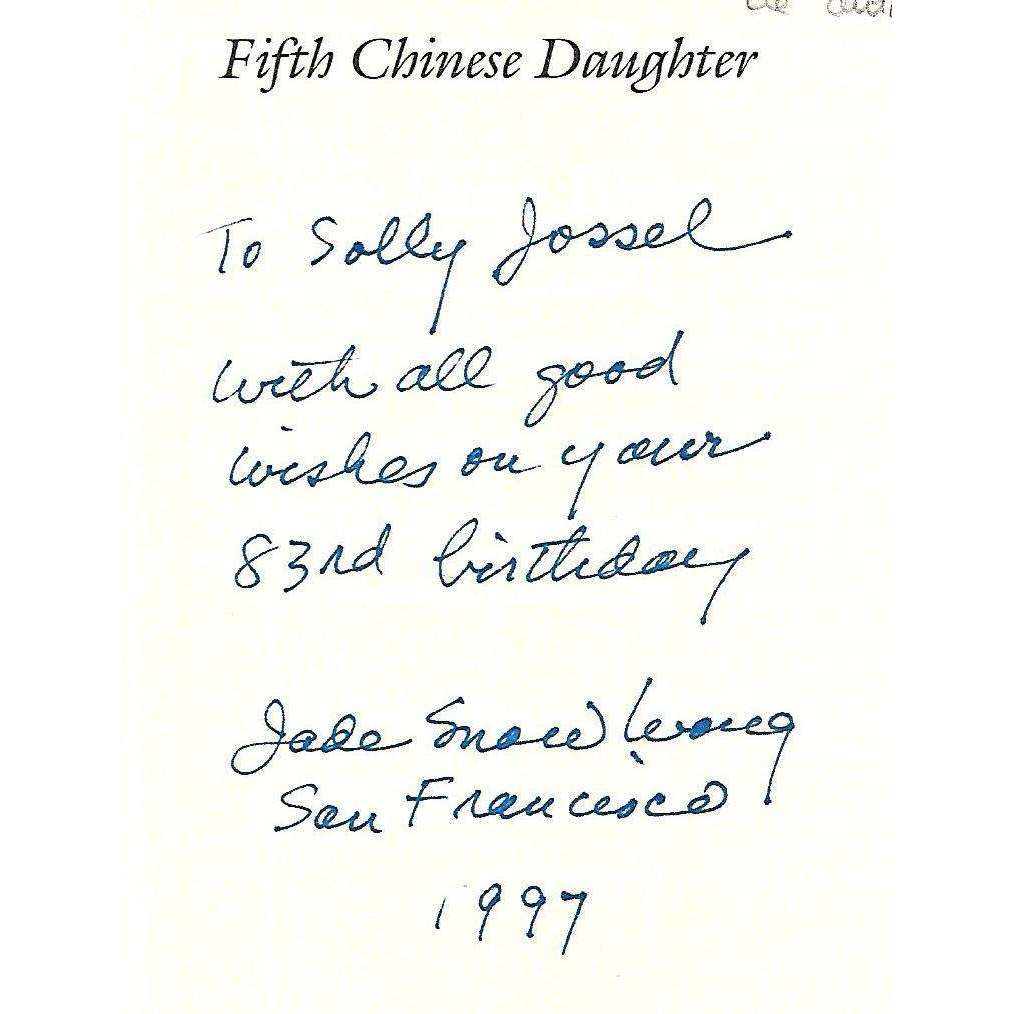 Fifth Chinese Daughter
To Solly Jossel
with all good
wishes on your
83rd birthday
Jade Snow Wong
San Francisco
1997